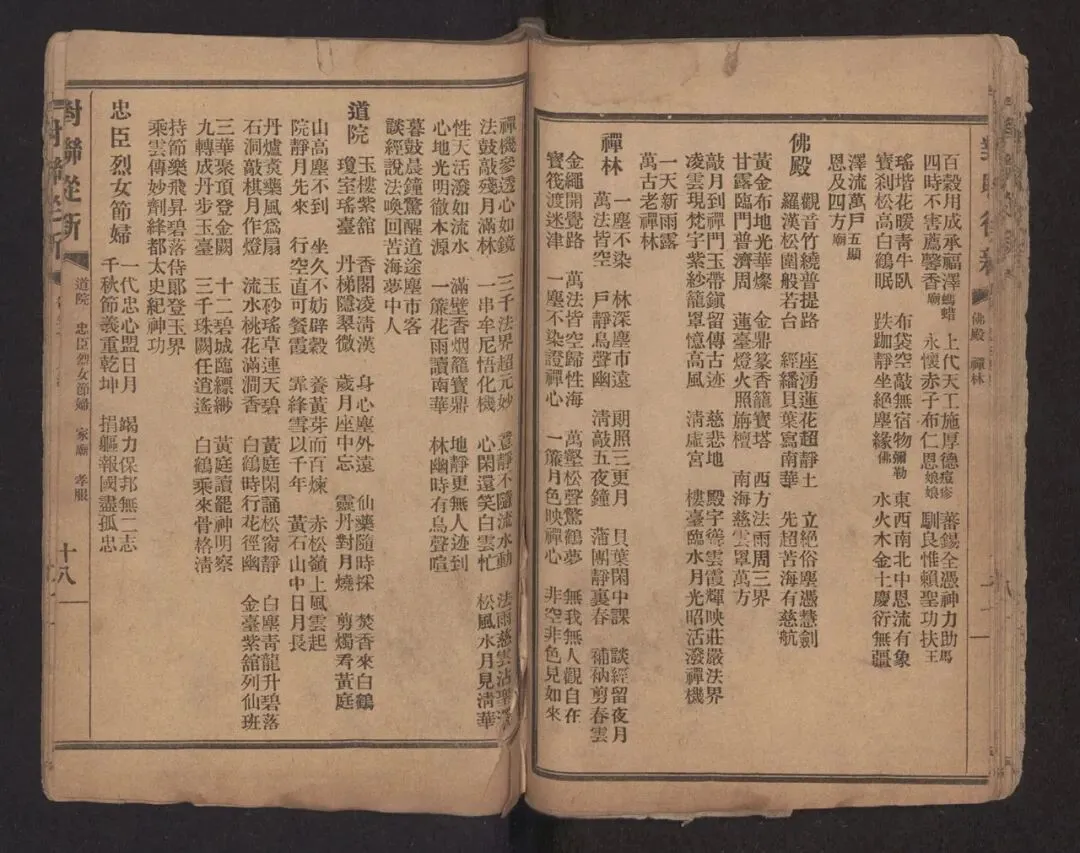 百穀用成承福澤螞蜡廟 上代天工施厚德痘疹 蕃錫全憑神力助馬
四時不害薦馨香 永懷赤子布仁恩娘娘 馴良惟賴聖功扶王
瑤堦花暖青牛臥 布袋空敲無宿物彌勒 東西南北中恩流有象
寶刹松高白鶴眠 趺跏靜坐絕塵緣佛 水火木金土慶衍無疆
澤流萬戶五顯
恩及四方廟
佛殿 觀音竹繞普提路 座湧蓮花超靜土 立絕俗塵憑慧劍
羅漢松圍般若台 經繙貝葉寫南華 先超苦海有慈航
黃金布地光華燦 金鼎篆香籠寶塔 西方法雨周三界
甘露臨門普濟周 蓮臺燈火照旃檀 南海慈雲罩萬方
敲月到禪門玉帶鎭留傳古迹 慈悲地 殿宇等雲霞輝映莊嚴法界
凌雲現梵宇紫紗籠罩憶高風 淸虛宮 樓臺臨水月光昭活潑禪機
一天新雨露
萬古老禪林
禪林 一塵不染 林深塵市遠 朗照三更月 貝葉閑中課 談經留夜月
萬法皆空 戶靜鳥聲幽 淸敲五夜鐘 蒲團靜裏春 補衲剪春雲
金繩開覺路 萬法皆空歸性海 萬壑松聲驚鶴夢 無我無人觀自在
寶筏渡迷津 一塵不染證禪心 一簾月色映禪心 非空非色見如來
佛殿 禪林
禪機參透心如鏡 三千法界超元妙 意靜不隨流水動 法雨慈雲沾聖澤
法鼓敲殘月滿林 一串牟尼悟化機 心閑還笑白雲忙 松風水月見淸華
性天活潑如流水 滿壁香烟籠寶鼎 地靜更無人迹到
心地光明徹本源 一簾花雨讀南華 林幽時有鳥聲喧
暮鼓晨鐘驚醒道途塵市客
談經說法喚回苦海夢中人
道院 玉樓紫舘 香閣凌淸漢 身心塵外遠 仙藥隨時採 焚香來白鶴
瓊室瑤臺 丹梯隱翠微 歲月座中忘 靈丹對月燒 剪燭看黃庭
山高塵不到 坐久不妨辟穀 養黃芽而百煉 赤松嶺上風雲起
院靜月先來 行空直可餐霞 霏絳雪以千年 黃石山中日月長
丹爐煑藥風爲扇 玉砂瑤草連天碧 黃庭閑誦松窗靜 白塵靑龍升碧落
石洞敲棋月作燈 流水桃花滿澗香 白鶴時行花徑幽 金臺紫舘列仙班
三華聚頂登金闕 十二碧城臨縹緲 黃庭讀罷神明察
九轉成丹步玉臺 三千珠闕任逍遙 白鶴乘來骨格淸
持節樂飛昇碧落侍郞登玉界
乘雲傳妙劑絳都太史紀神功
忠臣烈女節婦 一代忠心盟日月 竭力保邦無二志
千秋節義重乾坤 捐軀報國盡孤忠
對聯從新 道院 忠臣烈女節婦 家廟 孝服 十八